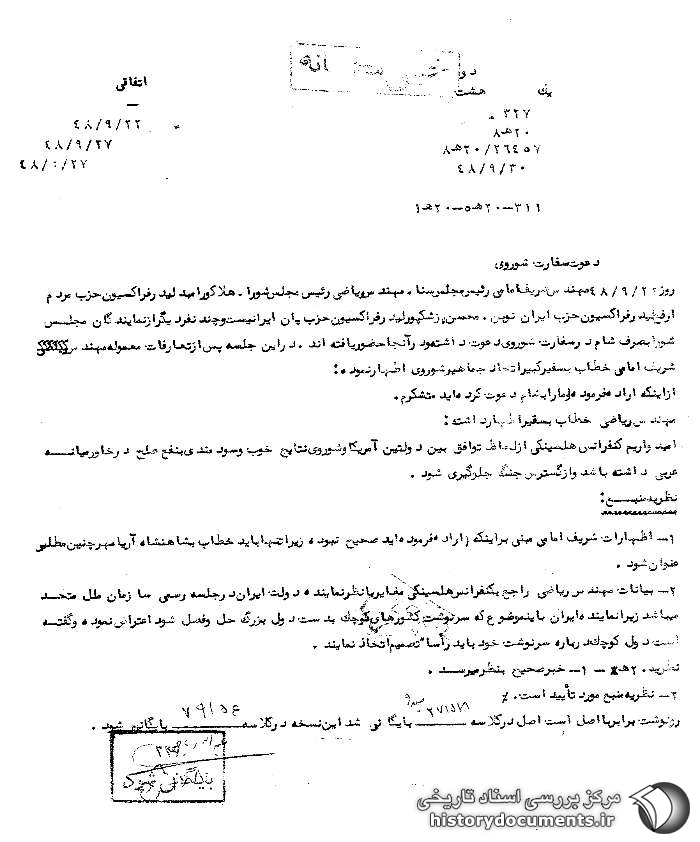 خیلی محرمانه
اتفاقی
یک هشت
٤٨/٩/٢٢
٣٢٧
٤٨/٩/٢٧
٢٠هـ٨
٢٠/٢٦٤٥٧هـ٨
٤٨/٩/٣٠
٣١١-٢٠هـ٥-٢٠هـ١
دعوت سفارت شوروی
روز ٤٨/٩/٢ مهندس شریف امامی رئیس مجلس سنا، مهندس ریاضی رئیس مجلس شورا. هلاکو رامبد لیدر فراکسیون حزب مردم
لیدر فراکسیون حزب ایران نوین. محسن پزشکپور لیدر فراکسیون حزب پان ایرانیست و چند نفر دیگر از نمایندگان مجلس
شورا بصرف شام در سفارت شوروی دعوت داشته و در آنجا حضور یافته اند. در این جلسه پس از تعارفات معموله مهندس
شریف امامی خطاب بسفیر کبیر اتحاد جماهیر شوروی اظهار نموده:
از اینکه اراده فرموده و ما را بشام دعوت کرده اید متشکرم.
مهندس ریاضی خطاب بسفیر اظهار داشته:
امیدواریم کنفرانس هلسینکی از لحاظ توافق بین دولتین آمریکا و شوروی نتایج خوب و سودمندی بنفع صلح در خاورمیانه
عربی داشته باشد و از گسترش جنگ جلوگیری شود.
نظریه منبع:
١- اظهارات شریف امامی مبنی بر اینکه (اراده فرموده اید صحیح نبوده زیرا تنها باید خطاب بشاهنشاه آریامهر چنین مطلبی
عنوان شود.
٢- بیانات مهندس ریاضی راجع بکنفرانس هلسینکی مغایر با نظر نماینده دولت ایران در جلسه رسمی سازمان ملل متحد
میباشد زیرا نماینده ایران باین موضوع که سرنوشت کشورهای کوچک بدست دول بزرگ حل و فصل شود اعتراض نموده و گفته
است دول کوچک درباره سرنوشت خود باید رأساً تصمیم اتخاذ نمایند.
نظریه. ٢٠هـ٨ -١- خبر صحیح بنظر میرسد.
٢- نظریه منبع مورد تأیید است.
رونوشت برابر با اصل است اصل در کلاسه ٢٧١٥٧١ بایگانی شد این نسخه در کلاسه بایگانی شود.
بایگانی شود
مرکز بررسی اسناد تاریخی
historydocuments.ir